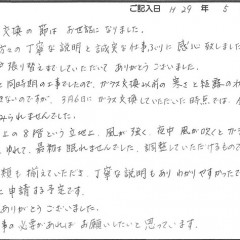 ご記入日 H29年 5
交換の節は お世話になりました。
の丁寧な説明と誠実な仕事ぶりに感心致しました
張り替えまでしていただいて ありがとうございました。
と同時期の工事でしたので、ガラス交換以前の寒さと結露の
ないのですが、3月6日にガラス交換していただいた時点では、
みられませんでした。
上の8階という立地上、風が強く、夜中 風が吹くと
ゆれて、最初は眠れませんでした、調整していただけるもので
類も揃えていただき、丁寧な説明もあり わかりやすかったで
と申請する予定です。
ありがとうございました。
事の必要があれば お願いしたいと思っています。